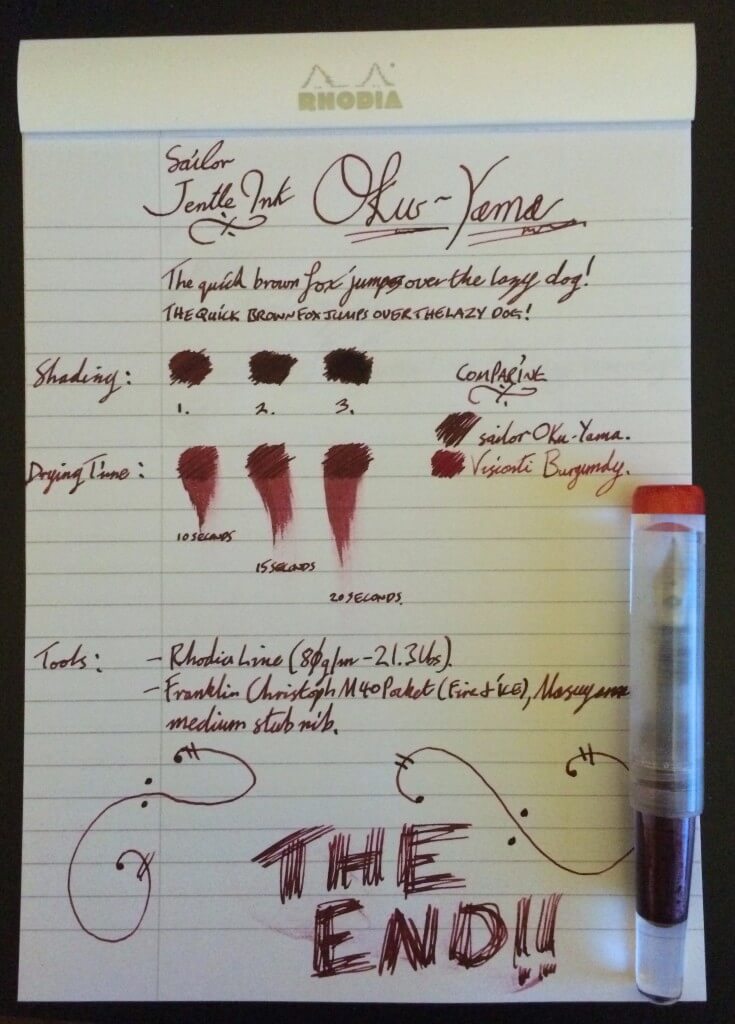 RHODIA
Sailor
Jentle Ink Oku-Yama
The quick brown fox jumps over the lazy dog!
THE QUICK BROWN FOX JUMPS OVER THE LAZY DOG!
Shading:
1. 2. 3.
COMPARING
Sailor Oku-Yama.
Drying Time:
Visconti Burgundy.
10 SECONDS
15 SECONDS
20 SECONDS.
Tools:
- Rhodia Line (80g/m - 21.3lbs).
- Franklin Christoph M40 Pocket (Fire & ICE), Masuyama
medium stub nib.
THE
END!!